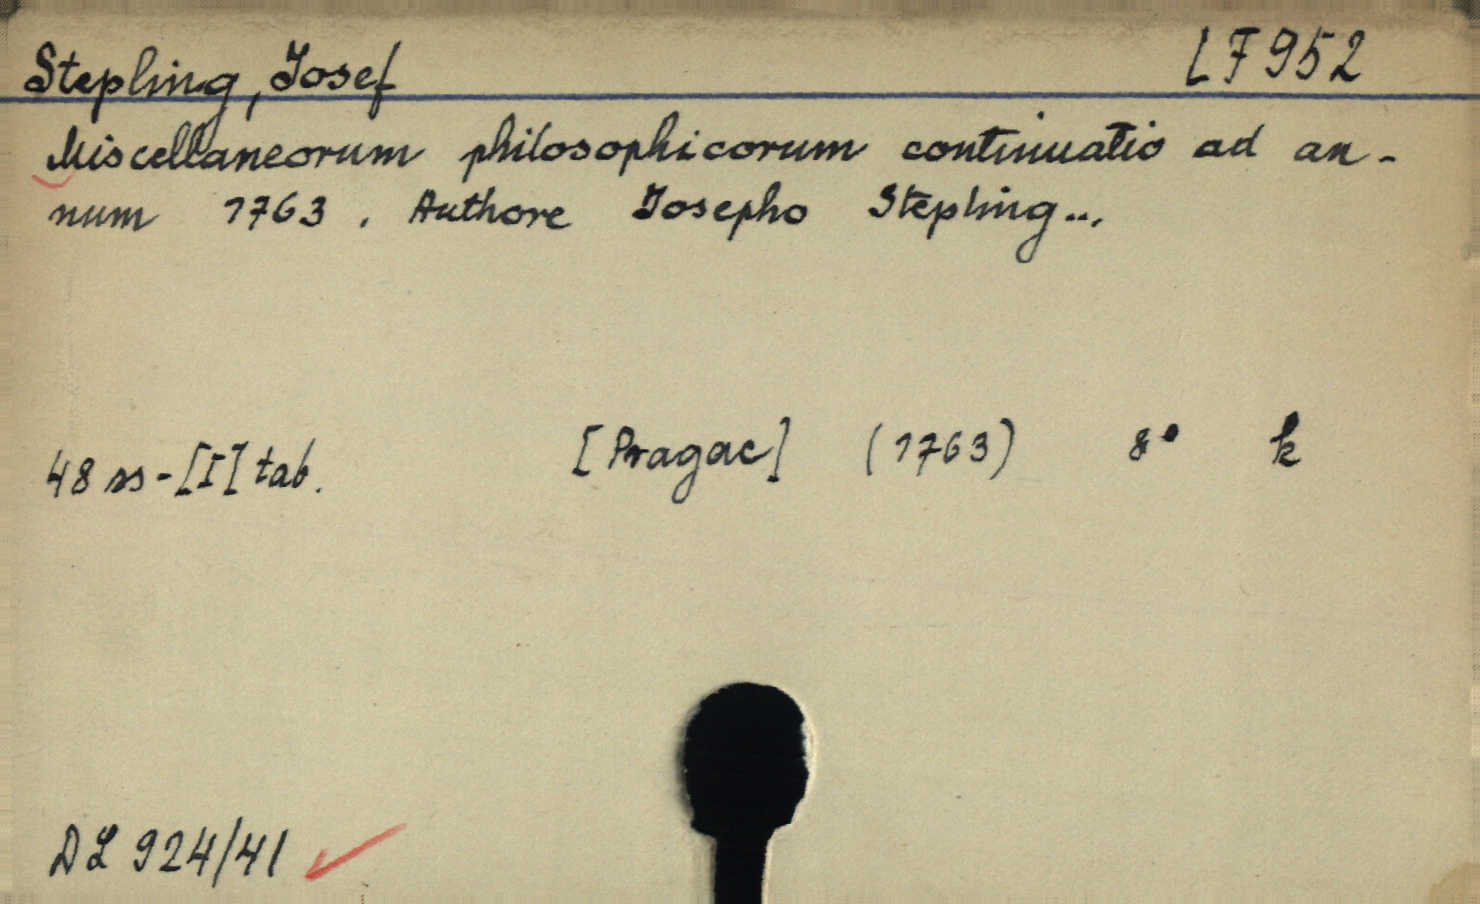 Stepling, Josef LF952
Miscellaneorum philosophicorum continuatio ad an-
num 1763. Authore Josepho Stepling...
48 ss - [I] tab. [Pragae] (1763) 8° k
DL 924/41